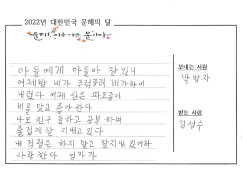 2022년 대한민국 문해의 달
아들에게 아들아 잘 있니
어제밤 비가 조금주러 비가마이
내렸다 어제 심은 파모종이
비를 맞고 좋아한다
나도 친구 들하고 공부 하며
즐겁게 잘 지내고 있다
내 걱정은 하지 말고 잘지내 있어라
사랑한다 엄마가
보내는 사람
박방자
받는 사람
김성수